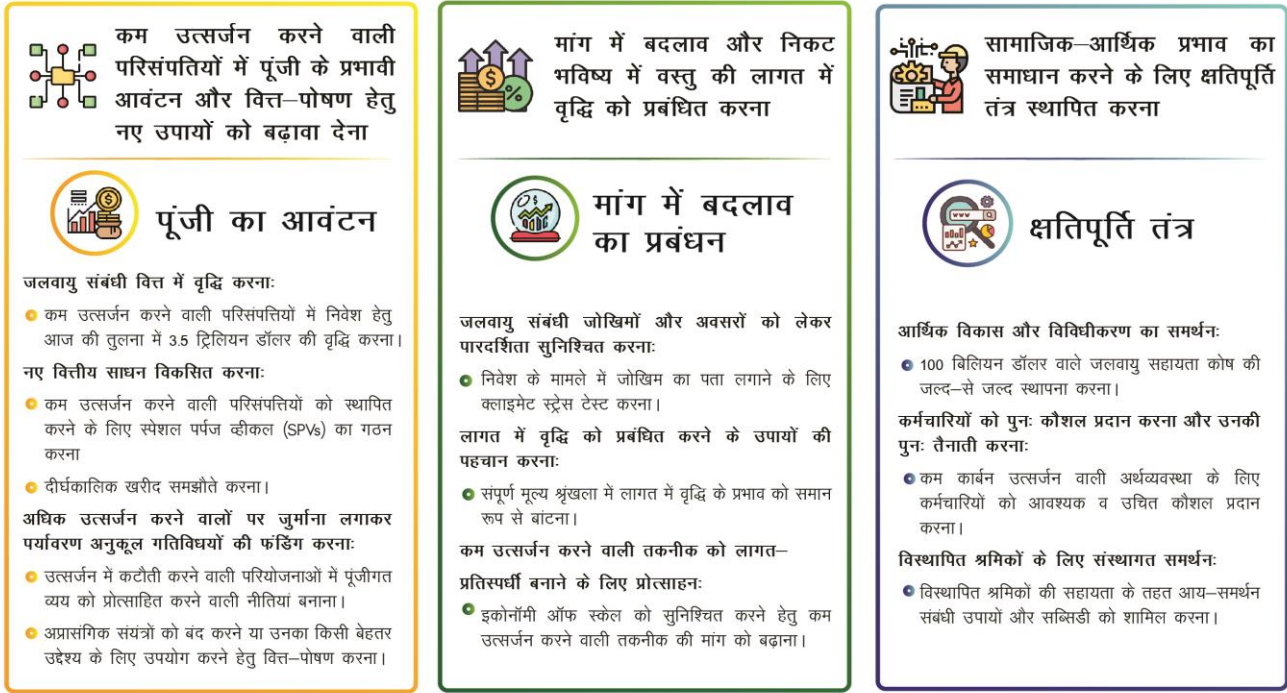 कम उत्सर्जन करने वाली
परिसंपतियों में पूंजी के प्रभावी
आवंटन और वित्त–पोषण हेतु
नए उपायों को बढ़ावा देना
पूंजी का आवंटन
जलवायु संबंधी वित्त में वृद्धि करनाः
कम उत्सर्जन करने वाली परिसंपत्तियों में निवेश हेतु
आज की तुलना में 3.5 ट्रिलियन डॉलर की वृद्धि करना।
नए वित्तीय साधन विकसित करनाः
कम उत्सर्जन करने वाली परिसंपत्तियों को स्थापित
करने के लिए स्पेशल पर्पज व्हीकल (SPVs) का गठन
करना
दीर्घकालिक खरीद समझौते करना।
अधिक उत्सर्जन करने वालों पर जुर्माना लगाकर
पर्यावरण अनुकूल गतिविधयों की फंडिंग करनाः
उत्सर्जन में कटौती करने वाली परियोजनाओं में पूंजीगत
व्यय को प्रोत्साहित करने वाली नीतियां बनाना।
अप्रासंगिक संयंत्रों को बंद करने या उनका किसी बेहतर
उद्देश्य के लिए उपयोग करने हेतु वित्त–पोषण करना।
मांग में बदलाव और निकट
भविष्य में वस्तु की लागत में
वृद्धि को प्रबंधित करना
मांग में बदलाव
का प्रबंधन
जलवायु संबंधी जोखिमों और अवसरों को लेकर
पारदर्शिता सुनिश्चित करनाः
निवेश के मामले में जोखिम का पता लगाने के लिए
क्लाइमेट स्ट्रेस टेस्ट करना।
लागत में वृद्धि को प्रबंधित करने के उपायों की
पहचान करनाः
संपूर्ण मूल्य श्रृंखला में लागत में वृद्धि के प्रभाव को समान
रूप से बांटना।
कम उत्सर्जन करने वाली तकनीक को लागत–
प्रतिस्पर्धी बनाने के लिए प्रोत्साहनः
इकोनॉमी ऑफ स्केल को सुनिश्चित करने हेतु कम
उत्सर्जन करने वाली तकनीक की मांग को बढ़ाना।
सामाजिक–आर्थिक प्रभाव का
समाधान करने के लिए क्षतिपूर्ति
तंत्र स्थापित करना
www
क्षतिपूर्ति तंत्र
आर्थिक विकास और विविधीकरण का समर्थनः
100 बिलियन डॉलर वाले जलवायु सहायता कोष की
जल्द–से जल्द स्थापना करना।
कर्मचारियों को पुनः कौशल प्रदान करना और उनकी
पुनः तैनाती करनाः
कम कार्बन उत्सर्जन वाली अर्थव्यवस्था के लिए
कर्मचारियों को आवश्यक व उचित कौशल प्रदान
करना।
विस्थापित श्रमिकों के लिए संस्थागत समर्थनः
विस्थापित श्रमिकों की सहायता के तहत आय–समर्थन
संबंधी उपायों और सब्सिडी को शामिल करना।